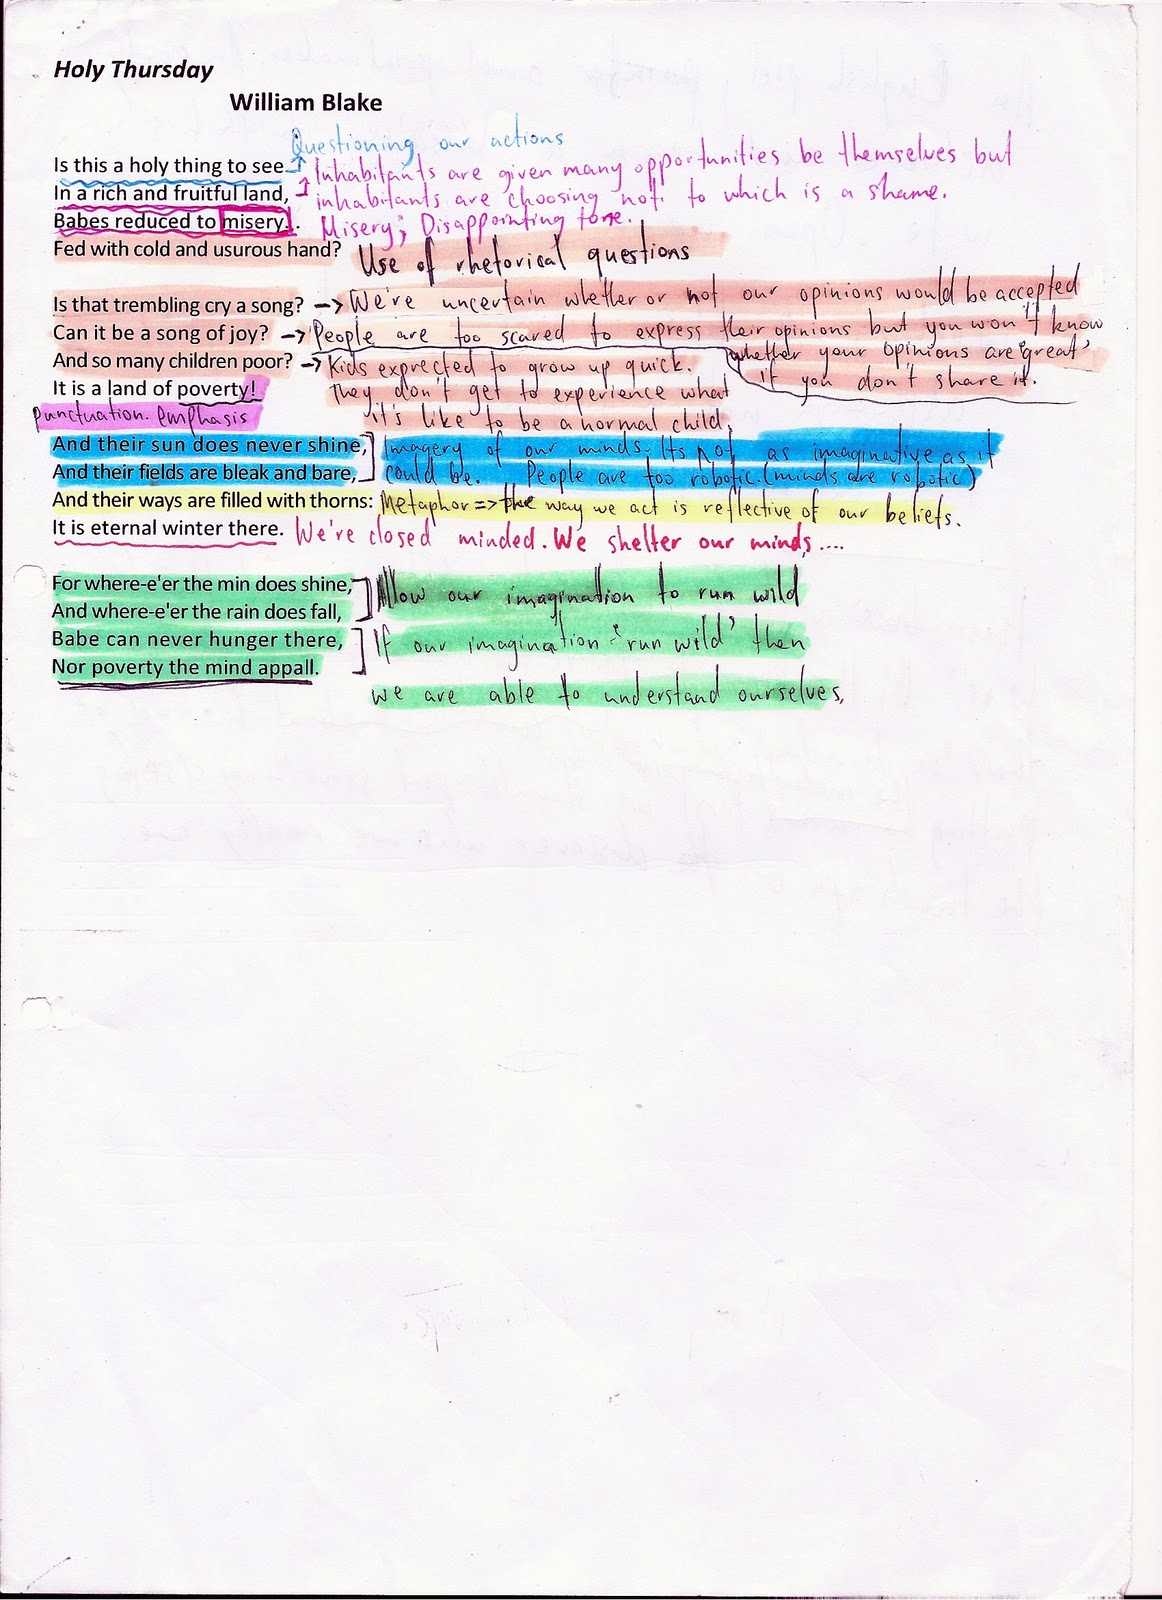 Holy Thursday
William Blake
Questioning our actions
Is this a holy thing to see
Inhabitants are given many opportunities be themselves but
In a rich and fruitful land,
inhabitants are choosing not to which is a shame.
Babes reduced to misery,
Misery; Disappointing tone.
Fed with cold and usurous hand?
Use of rhetorical questions
Is that trembling cry a song? → We're uncertain whether or not our opinions would be accepted
Can it be a song of joy? → People are too scared to express their opinions but you won't know
whether your opinions are 'great'
if you don't share it.
And so many children poor? → Kids exprected to grow up quick.
It is a land of poverty! They don't get to experience what
punctuation. emphasis it's like to be a normal child.
And their sun does never shine, Imagery of our minds. Its not as imaginative as it
And their fields are bleak and bare, could be. People are too robotic. (minds are robotic)
And their ways are filled with thorns: Metaphor => the way we act is reflective of our beliefs.
It is eternal winter there. We're closed minded. We shelter our minds....
For where-e'er the min does shine, Allow our imagination to run wild
And where-e'er the rain does fall,
Babe can never hunger there, If our imagination 'run wild' then
Nor poverty the mind appall.
we are able to understand ourselves.